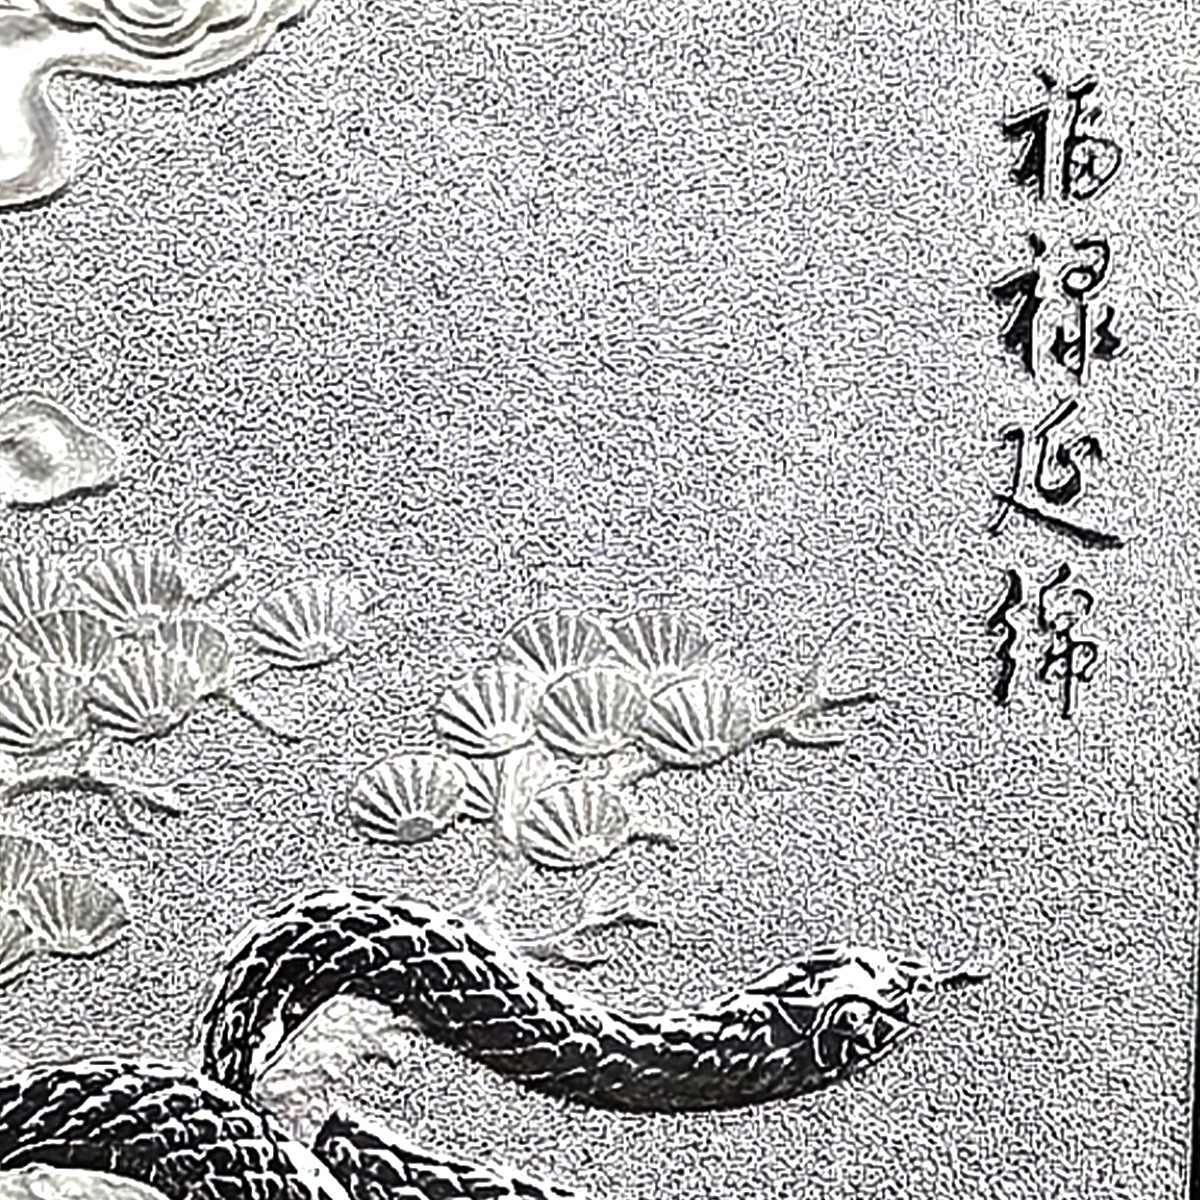 福禄延绵